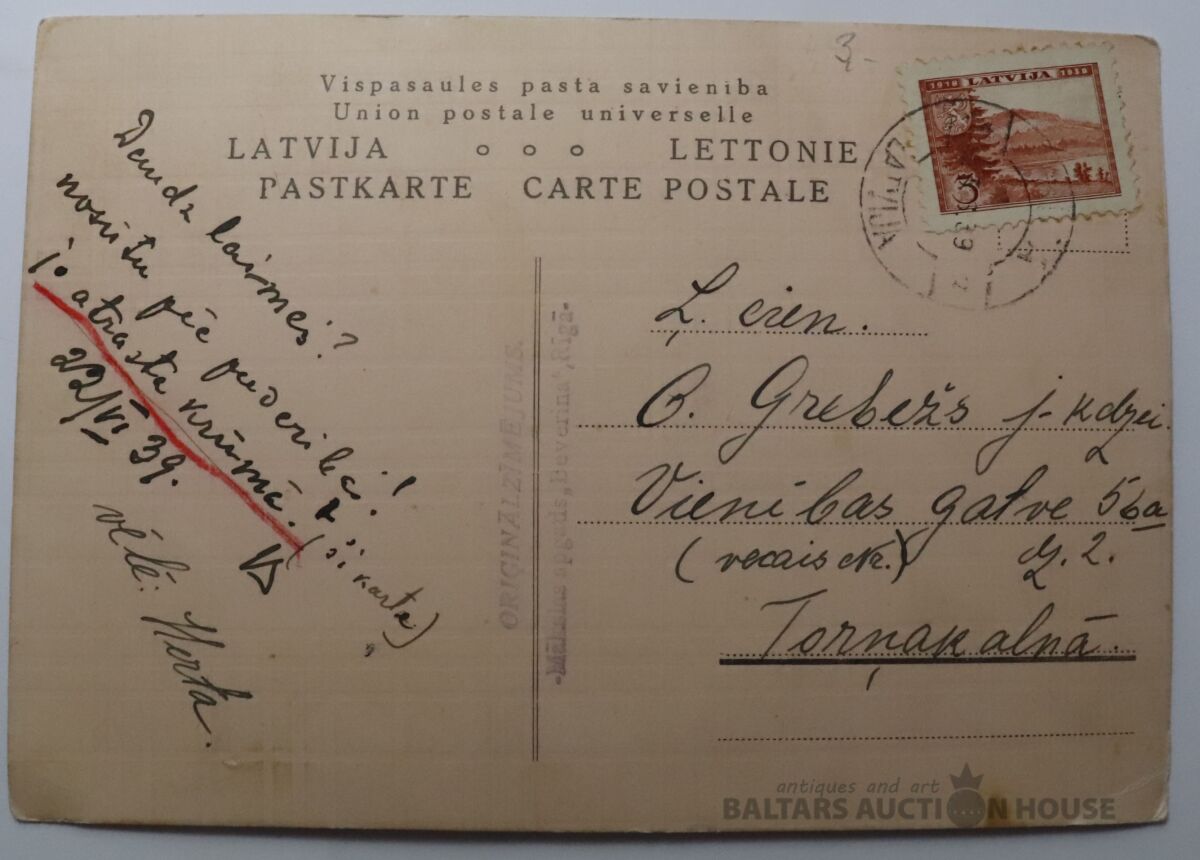 3.-
1918 LATVIJA 1938
3
LATVIJA
Vispasaules pasta savienība
Union postale universelle
LATVIJA o o o LETTONIE
PASTKARTE CARTE POSTALE
Daudz laimes!?
nosūtu pēc
atrasta krūmā. (šī karte)
22/VI 39.
vēlē: Herta.
ORIĢINĀLZĪMĒJUMS.
Mākslas apgāds „Beverina", Rīgā
Ļ. cien.
O. Grebežs j-kdzei.
Vienības gatve 56a
(vecais nr.) dz. 2.
Torņakalnā.
antiques and art
BALTARS AUCTION HOUSE